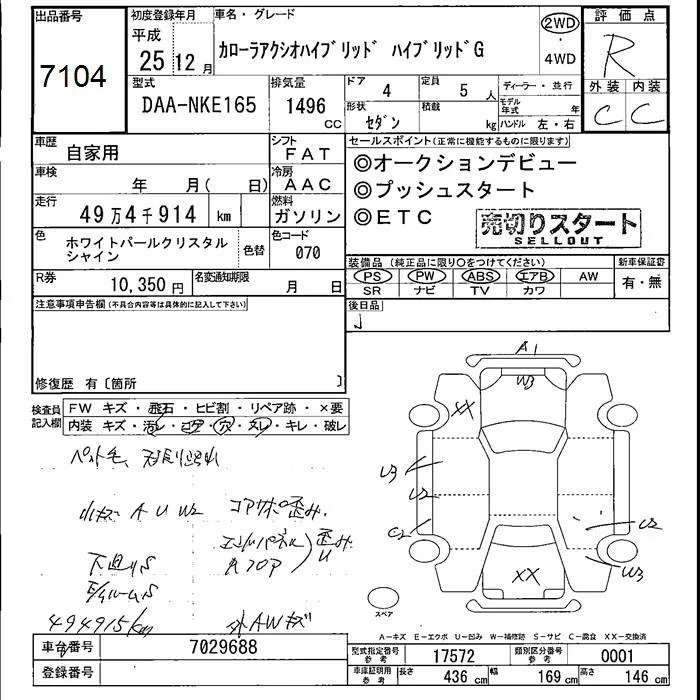 出品番号
7104
初度登録年月
平成
25年12月
車名・グレード
カローラアクシオハイブリッド ハイブリッドG
2WD
・
4WD
評価点
R
外装 内装
C C
型式
DAA-NKE165
排気量
1496
CC
ドア
4
定員
5人
ディーラー・並行
形状
セダン
積載
kg
モデル年式
年
ハンドル 左・右
車歴
自家用
シフト
FAT
車検
年 月( 日)
冷房
AAC
走行
49万4千914 km
燃料
ガソリン
色
ホワイトパールクリスタル
シャイン
色替
色コード
070
R券
10,350円
名変通知期限
月 日
セールスポイント(正常に機能するものに限ります)
◎オークションデビュー
◎プッシュスタート
◎ETC
売切りスタート
SELLOUT
装備品(純正品に限り○をつけてください)
PS PW ABS エアB AW
SR ナビ TV カワ
新車保証書
有・無
後日品
注意事項申告欄(不具合内容等は具体的に記入して下さい)
修復歴 有〔箇所 〕
検査員
記入欄
FW キズ・飛石・ヒビ割・リペア跡・×要
内装 キズ・汚レ・コゲ・穴・スレ・キレ・破レ
小キズ A U W2 コアサポ歪み
下廻りS
494915km
外AWキズ
A1
W3
XX
U3
U2
XX
U2
W3
スペア
A−キズ E−エクボ U−凹み W−補修跡 S−サビ C−腐食 XX−交換済
車台番号
7029688
登録番号
型式指定番号
参考
17572
類別区分番号
参考
0001
車庫証明用
参考
長さ
436 cm
幅
169 cm
高さ
146 cm